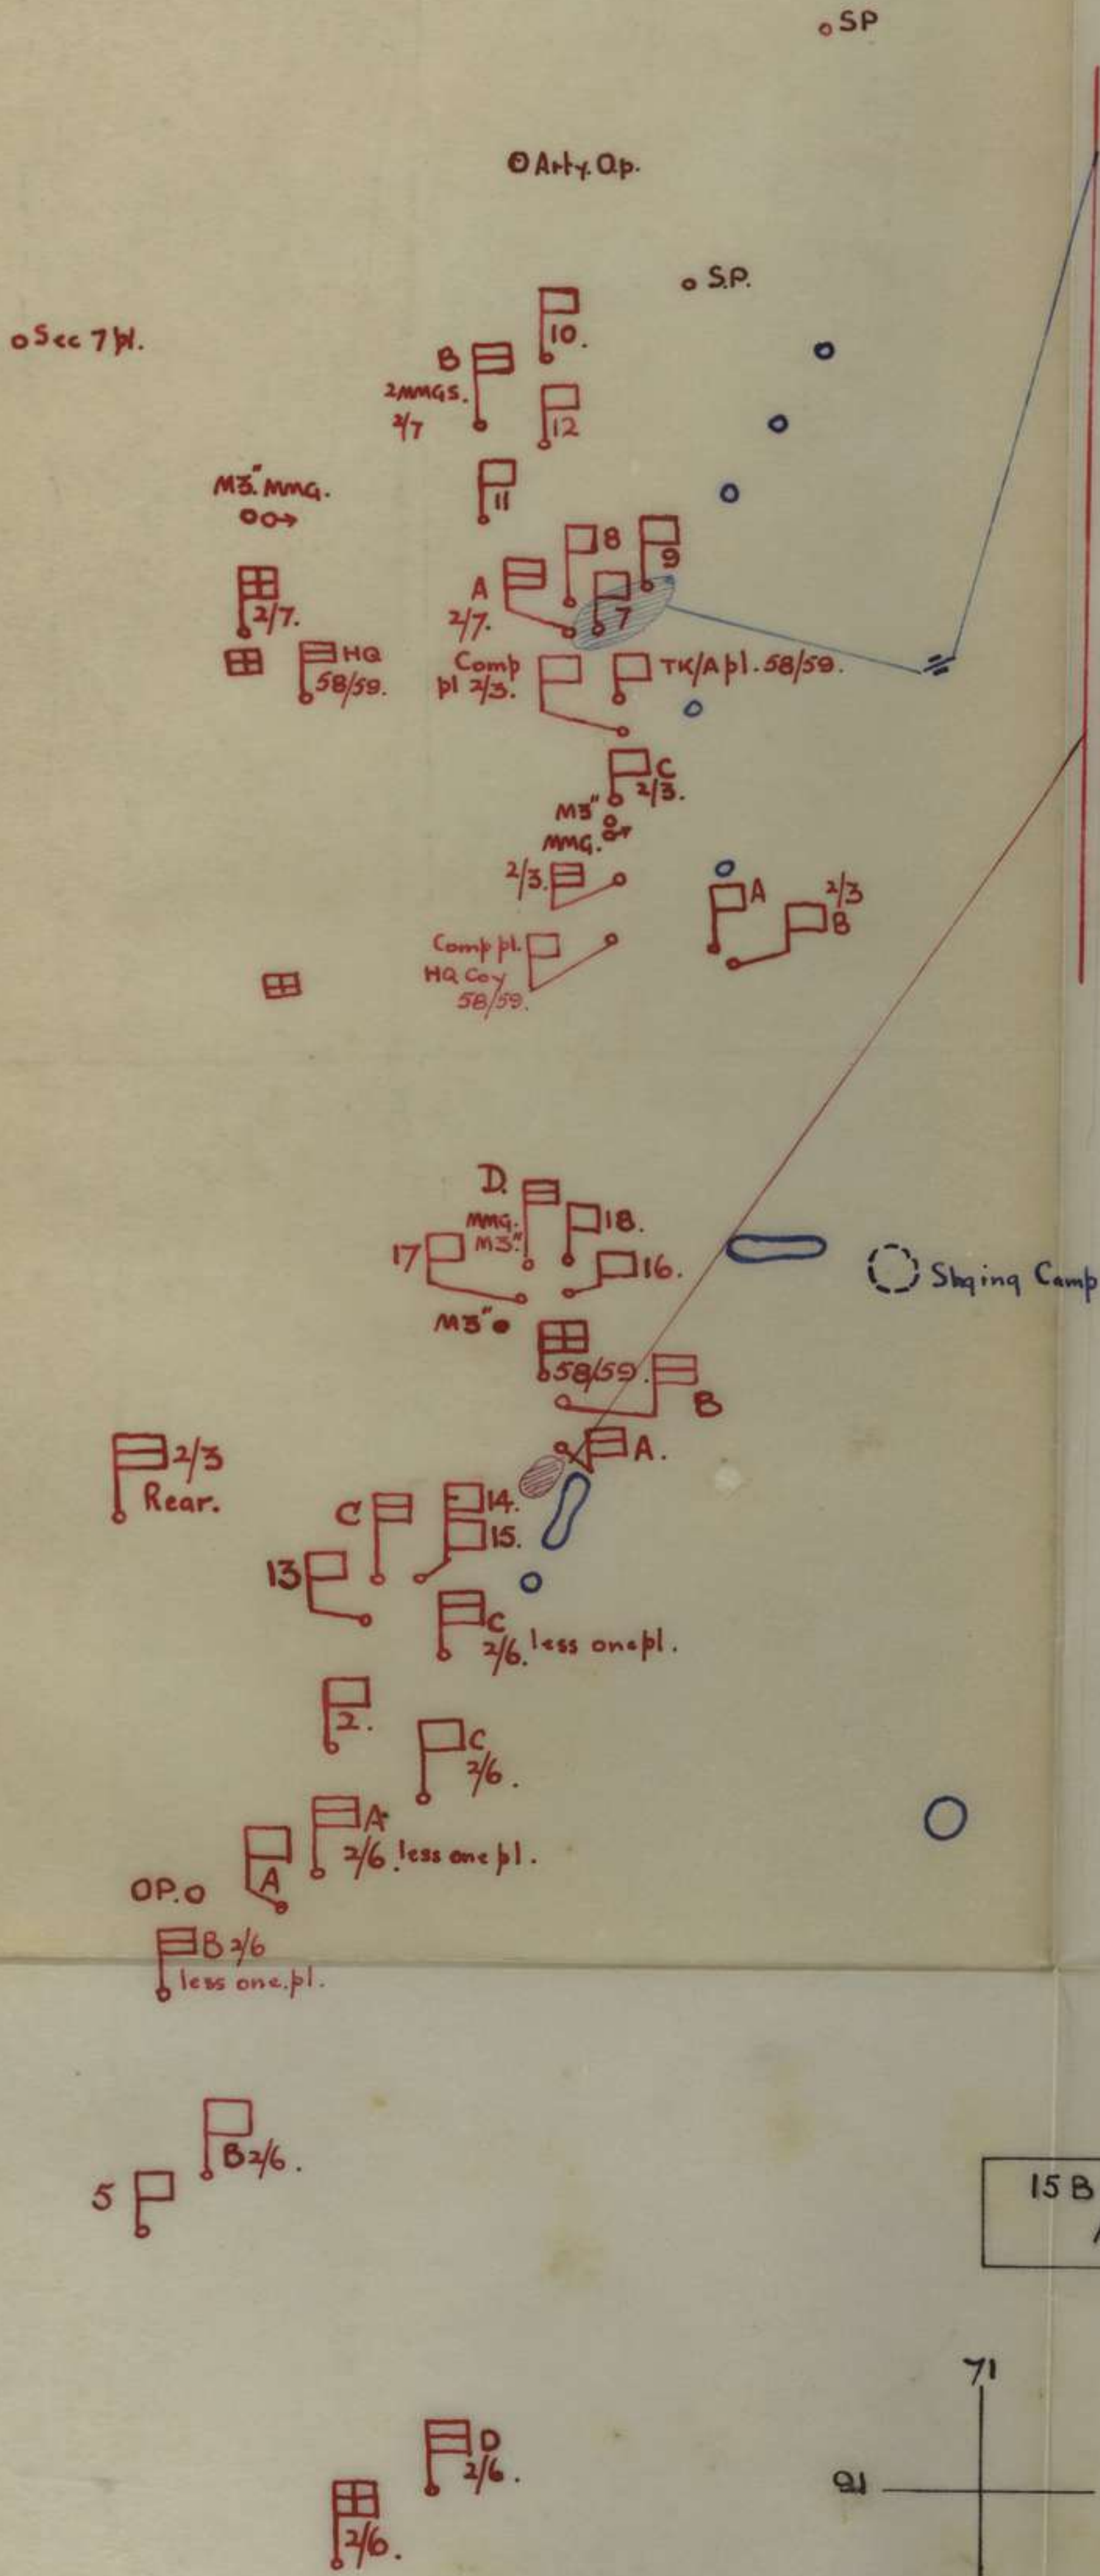 SP
Arty. Op.
S.P.
Sec 7 pl.
10.
B
2MMGS.
2/7
12
11
M3" MMG.
8
9
A
2/7.
7
2/7.
HQ
58/59.
Comp
pl 2/3.
TK/A pl. 58/59.
C
2/3.
M3"
MMG.
2/3.
A
2/3
B
Comp pl.
HQ Coy
58/59.
D.
MMG.
M3".
18.
17
16.
Stging Camp
M3"
58/59.
B
A.
2/3
Rear.
C
14.
15.
13
C
2/6. less one pl.
2.
C
2/6.
A
2/6. less one pl.
A
OP.
B 2/6
less one. pl.
B 2/6.
5
15 B
71
D
2/6.
91
2/6.